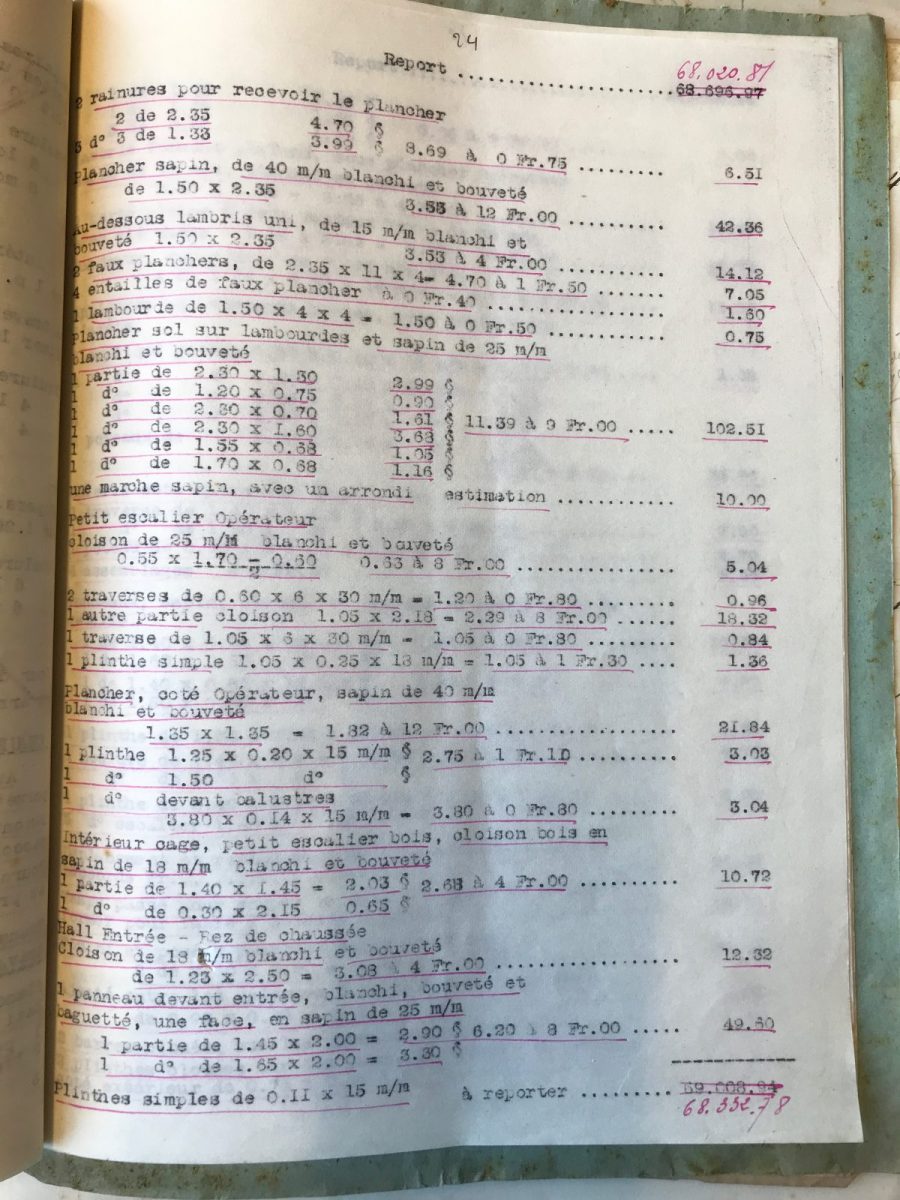 24
Report .......................... 68.020.81
68.696.97
2 rainures pour recevoir le plancher
2 de 2.35 4.70 §
3 d° 3 de 1.33 3.99 § 8.69 à 0 Fr.75 ......... 6.51
plancher sapin, de 40 m/m blanchi et bouveté
de 1.50 x 2.35 3.53 à 12 Fr.00 .......... 42.36
Au-dessous lambris uni, de 15 m/m blanchi et
bouveté 1.50 x 2.35 3.53 à 4 Fr.00 ........... 14.12
2 faux planchers, de 2.35 x 11 x 4= 4.70 à 1 Fr.50 ........ 7.05
4 entailles de faux plancher à 0 Fr.40 .................. 1.60
1 lambourde de 1.50 x 4 x 4 = 1.50 à 0 Fr.50 ............ 0.75
plancher sol sur lambourdes et sapin de 25 m/m
blanchi et bouveté
1 partie de 2.30 x 1.30 2.99 §
1 d° de 1.20 x 0.75 0.90 §
1 d° de 2.30 x 0.70 1.61 § 11.39 à 9 Fr.00 ..... 102.51
1 d° de 2.30 x 1.60 3.68 §
1 d° de 1.55 x 0.68 1.05 §
1 d° de 1.70 x 0.68 1.16 §
une marche sapin, avec un arrondi estimation ............ 10.00
Petit escalier Opérateur
cloison de 25 m/m blanchi et bouveté
0.55 x 1.70 = 0.60 0.63 à 8 Fr.00 ................ 5.04
2
2 traverses de 0.60 x 6 x 30 m/m = 1.20 à 0 Fr.80 ......... 0.96
1 autre partie cloison 1.05 x 2.18 = 2.29 à 8 Fr.00 ...... 18.32
1 traverse de 1.05 x 6 x 30 m/m = 1.05 à 0 Fr.80 ......... 0.84
1 plinthe simple 1.05 x 0.25 x 18 m/m = 1.05 à 1 Fr.30 .... 1.36
Plancher, coté Opérateur, sapin de 40 m/m
blanchi et bouveté
1.35 x 1.35 = 1.82 à 12 Fr.00 .................. 21.84
1 plinthe 1.25 x 0.20 x 15 m/m § 2.75 à 1 Fr.10 .......... 3.03
1 d° 1.50 d° §
1 d° devant balustres
3.80 x 0.14 x 15 m/m = 3.80 à 0 Fr.80 .......... 3.04
Intérieur cage, petit escalier bois, cloison bois en
sapin de 18 m/m blanchi et bouveté
1 partie de 1.40 x 1.45 = 2.03 § 2.68 à 4 Fr.00 .......... 10.72
1 d° de 0.30 x 2.15 0.65 §
Hall Entrée - Rez de chaussée
Cloison de 18 m/m blanchi et bouveté
de 1.23 x 2.50 = 3.08 à 4 Fr.00 .................. 12.32
1 panneau devant entrée, blanchi, bouveté et
baguetté, une face, en sapin de 25 m/m
1 partie de 1.45 x 2.00 = 2.90 § 6.20 à 8 Fr.00 ..... 49.60
1 d° de 1.65 x 2.00 = 3.30 §
Plinthes simples de 0.11 x 15 m/m à reporter ......... 69.008.94
68.332.78